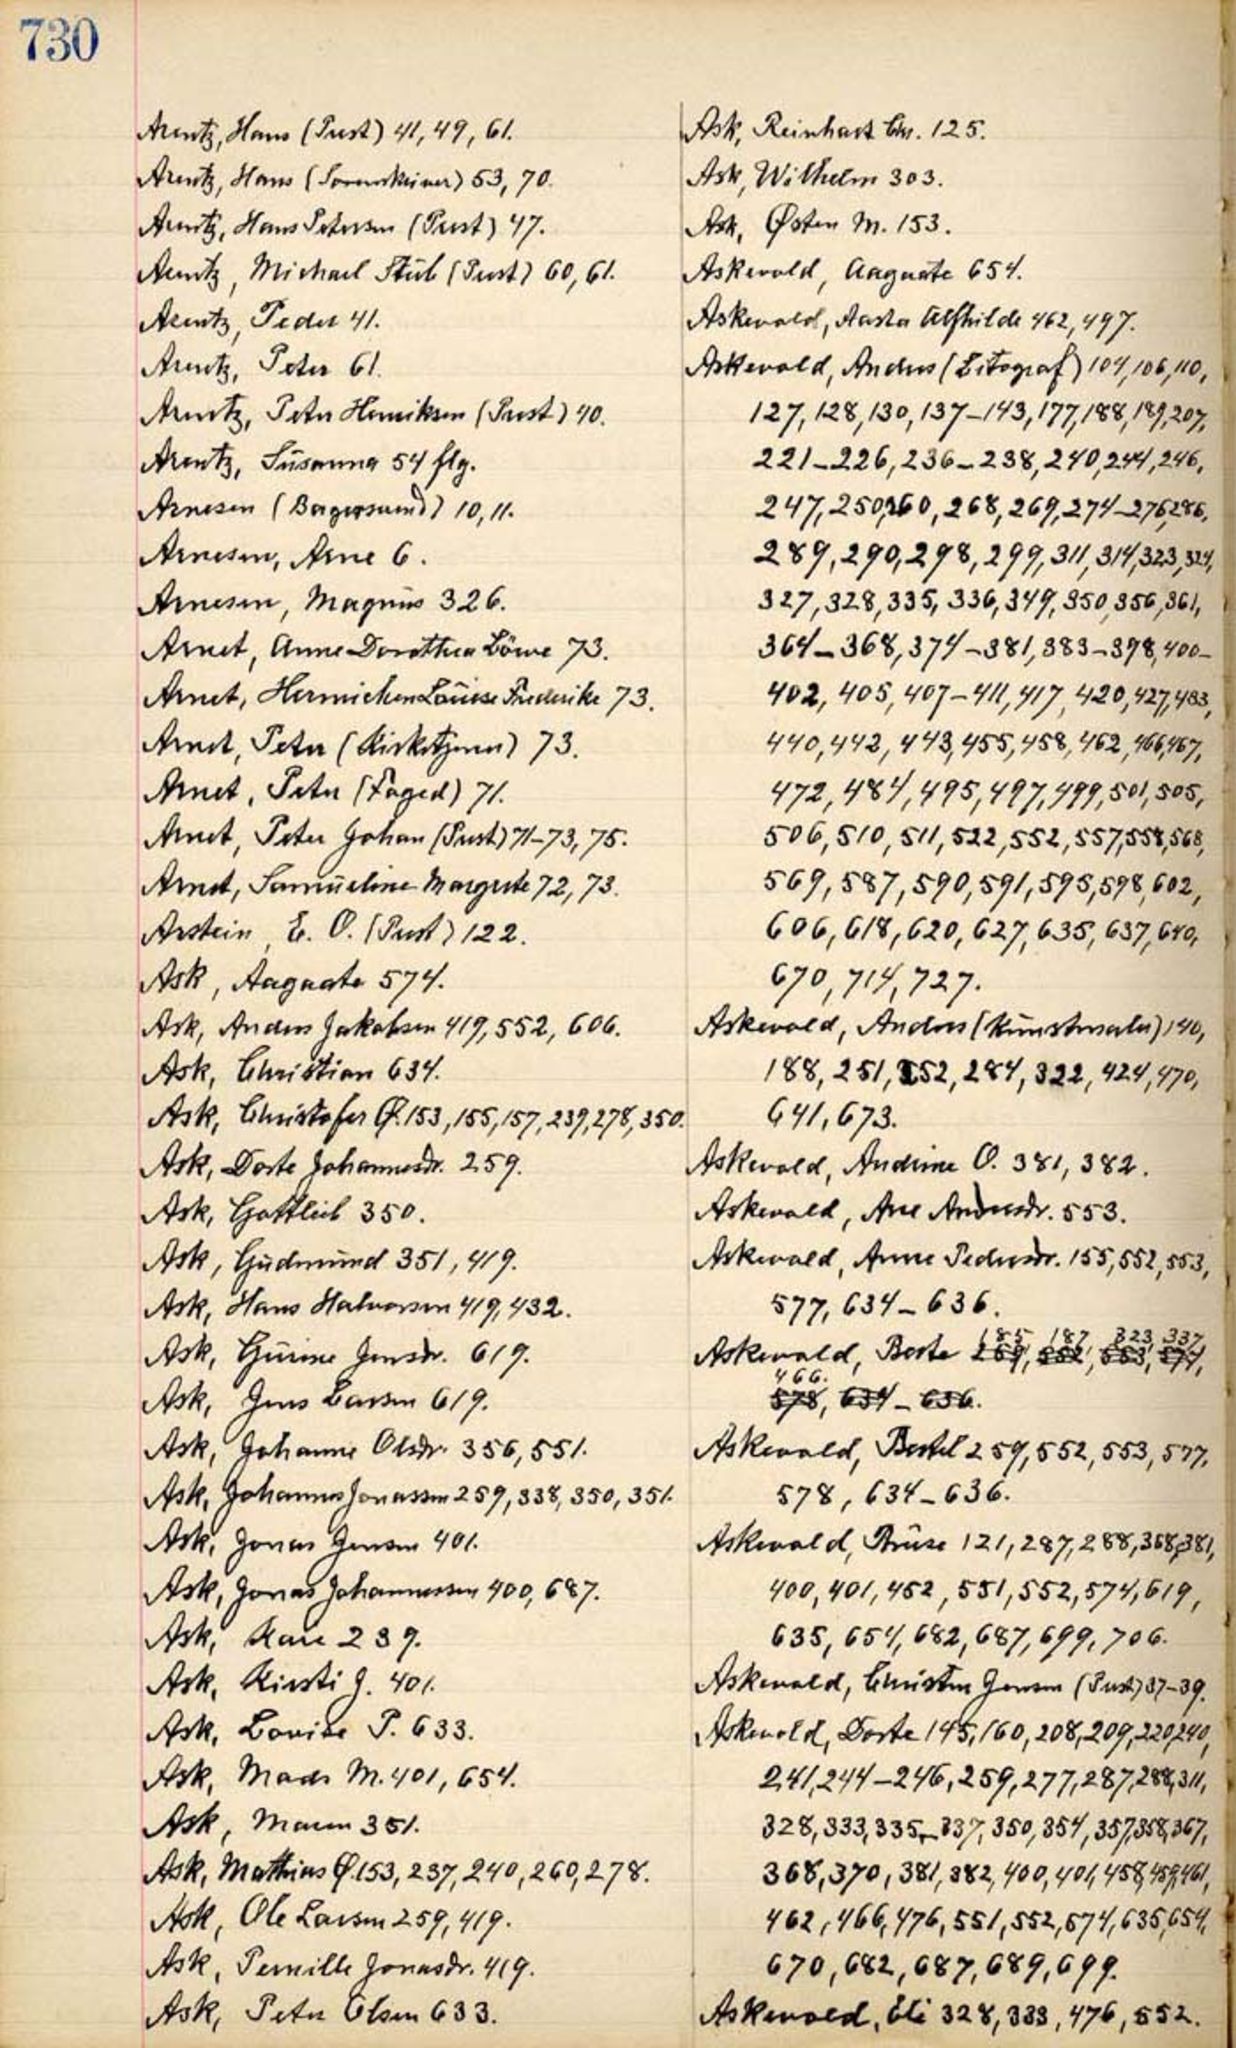 730
Arentz, Hans (Prest) 41, 49, 61.
Arentz, Hans (Sorenskriver) 53, 70.
Arentz, Hans Petersen (Prest) 47.
Arentz, Michael Stüb (Prest) 60, 61.
Arentz, Peder 41.
Arentz, Peter 61.
Arentz, Peter Henriksen (Prest) 40.
Arentz, Süsanna 54 flg.
Arnesen (Borgersmed) 10, 11.
Arnesen, Arne 6.
Arnesen, Magnüs 326.
Arnet, Anne Dorothea Löwe 73.
Arnet, Hermichen Loüise Frederike 73.
Arnet, Peter 73.
Arnet, Peter (Foged) 71.
Arnet, Peter Johan (Prest) 71-73, 75.
Arnet, Samüeline Margrete 72, 73.
Arstein, E. O. (Prest) 122.
Ask, Aagaate 574.
Ask, Anders Jakobsen 419, 552, 606.
Ask, Christian 634.
Ask, Christofer Ø. 153, 155, 157, 239, 278, 350.
Ask, Dorte Johannesdr. 259.
Ask, Gottlieb 350.
Ask, Güdmünd 351, 419.
Ask, Hans Halvorsen 419, 432.
Ask, Gürine Jensdr. 619.
Ask, Jens Larsen 619.
Ask, Johanne Olsdr. 356, 551.
Ask, Johannes Jonassen 259, 338, 350, 351.
Ask, Jonas Jensen 401.
Ask, Jonas Johannessen 400, 687.
Ask, Kari 239.
Ask, Kirsti J. 401.
Ask, Lovise P. 633.
Ask, Mads M. 401, 654.
Ask, Maren 351.
Ask, Mathias Ø. 153, 237, 240, 260, 278.
Ask, Ole Larsen 259, 419.
Ask, Pernille Jonasdr. 419.
Ask, Peter Olsen 633.
Ask, Reinhart Chr. 125.
Ask, Wilhelm 303.
Ask, Østen M. 153.
Askevold, Aagaate 654.
Askevold, Aasta Alfhilde 462, 497.
Askevold, Anders (Litograf) 104, 106, 110,
127, 128, 130, 137-143, 177, 188, 189, 207,
221-226, 236-238, 240, 244, 246,
247, 250, 260, 268, 269, 274-276, 286,
289, 290, 298, 299, 311, 314, 323, 324,
327, 328, 335, 336, 349, 350, 356, 361,
364-368, 374-381, 383-398, 400-
402, 405, 407-411, 417, 420, 427, 433,
440, 442, 443, 455, 458, 462, 466, 467,
472, 484, 495, 497, 499, 501, 505,
506, 510, 511, 522, 552, 557, 558, 568,
569, 587, 590, 591, 595, 598, 602,
606, 618, 620, 627, 635, 637, 640,
670, 714, 727.
Askevold, Anders (Künstmaler) 140,
188, 251, 252, 284, 322, 424, 470,
641, 673.
Askevold, Andrine O. 381, 382.
Askevold, Ane Andersdr. 553.
Askevold, Anne Pedersdr. 155, 552, 553,
577, 634-636.
185, 187, 323, 337,
Askevold, Berte 259, 552, 553, 577,
466.
578, 634-636.
Askevold, Bertel 259, 552, 553, 577,
578, 634-636.
Askevold, Brüse 121, 287, 288, 368, 381,
400, 401, 452, 551, 552, 574, 619,
635, 654, 682, 687, 699, 706.
Askevold, Christen Jensen (Prest) 37-39.
Askevold, Dorte 145, 160, 208, 209, 220, 240,
241, 244-246, 259, 277, 287, 288, 311,
328, 333, 335-337, 350, 354, 357, 358, 367,
368, 370, 381, 382, 400, 401, 458, 459, 461,
462, 466, 476, 551, 552, 574, 635, 654,
670, 682, 687, 689, 699.
Askevold, Eli 328, 333, 476, 552.